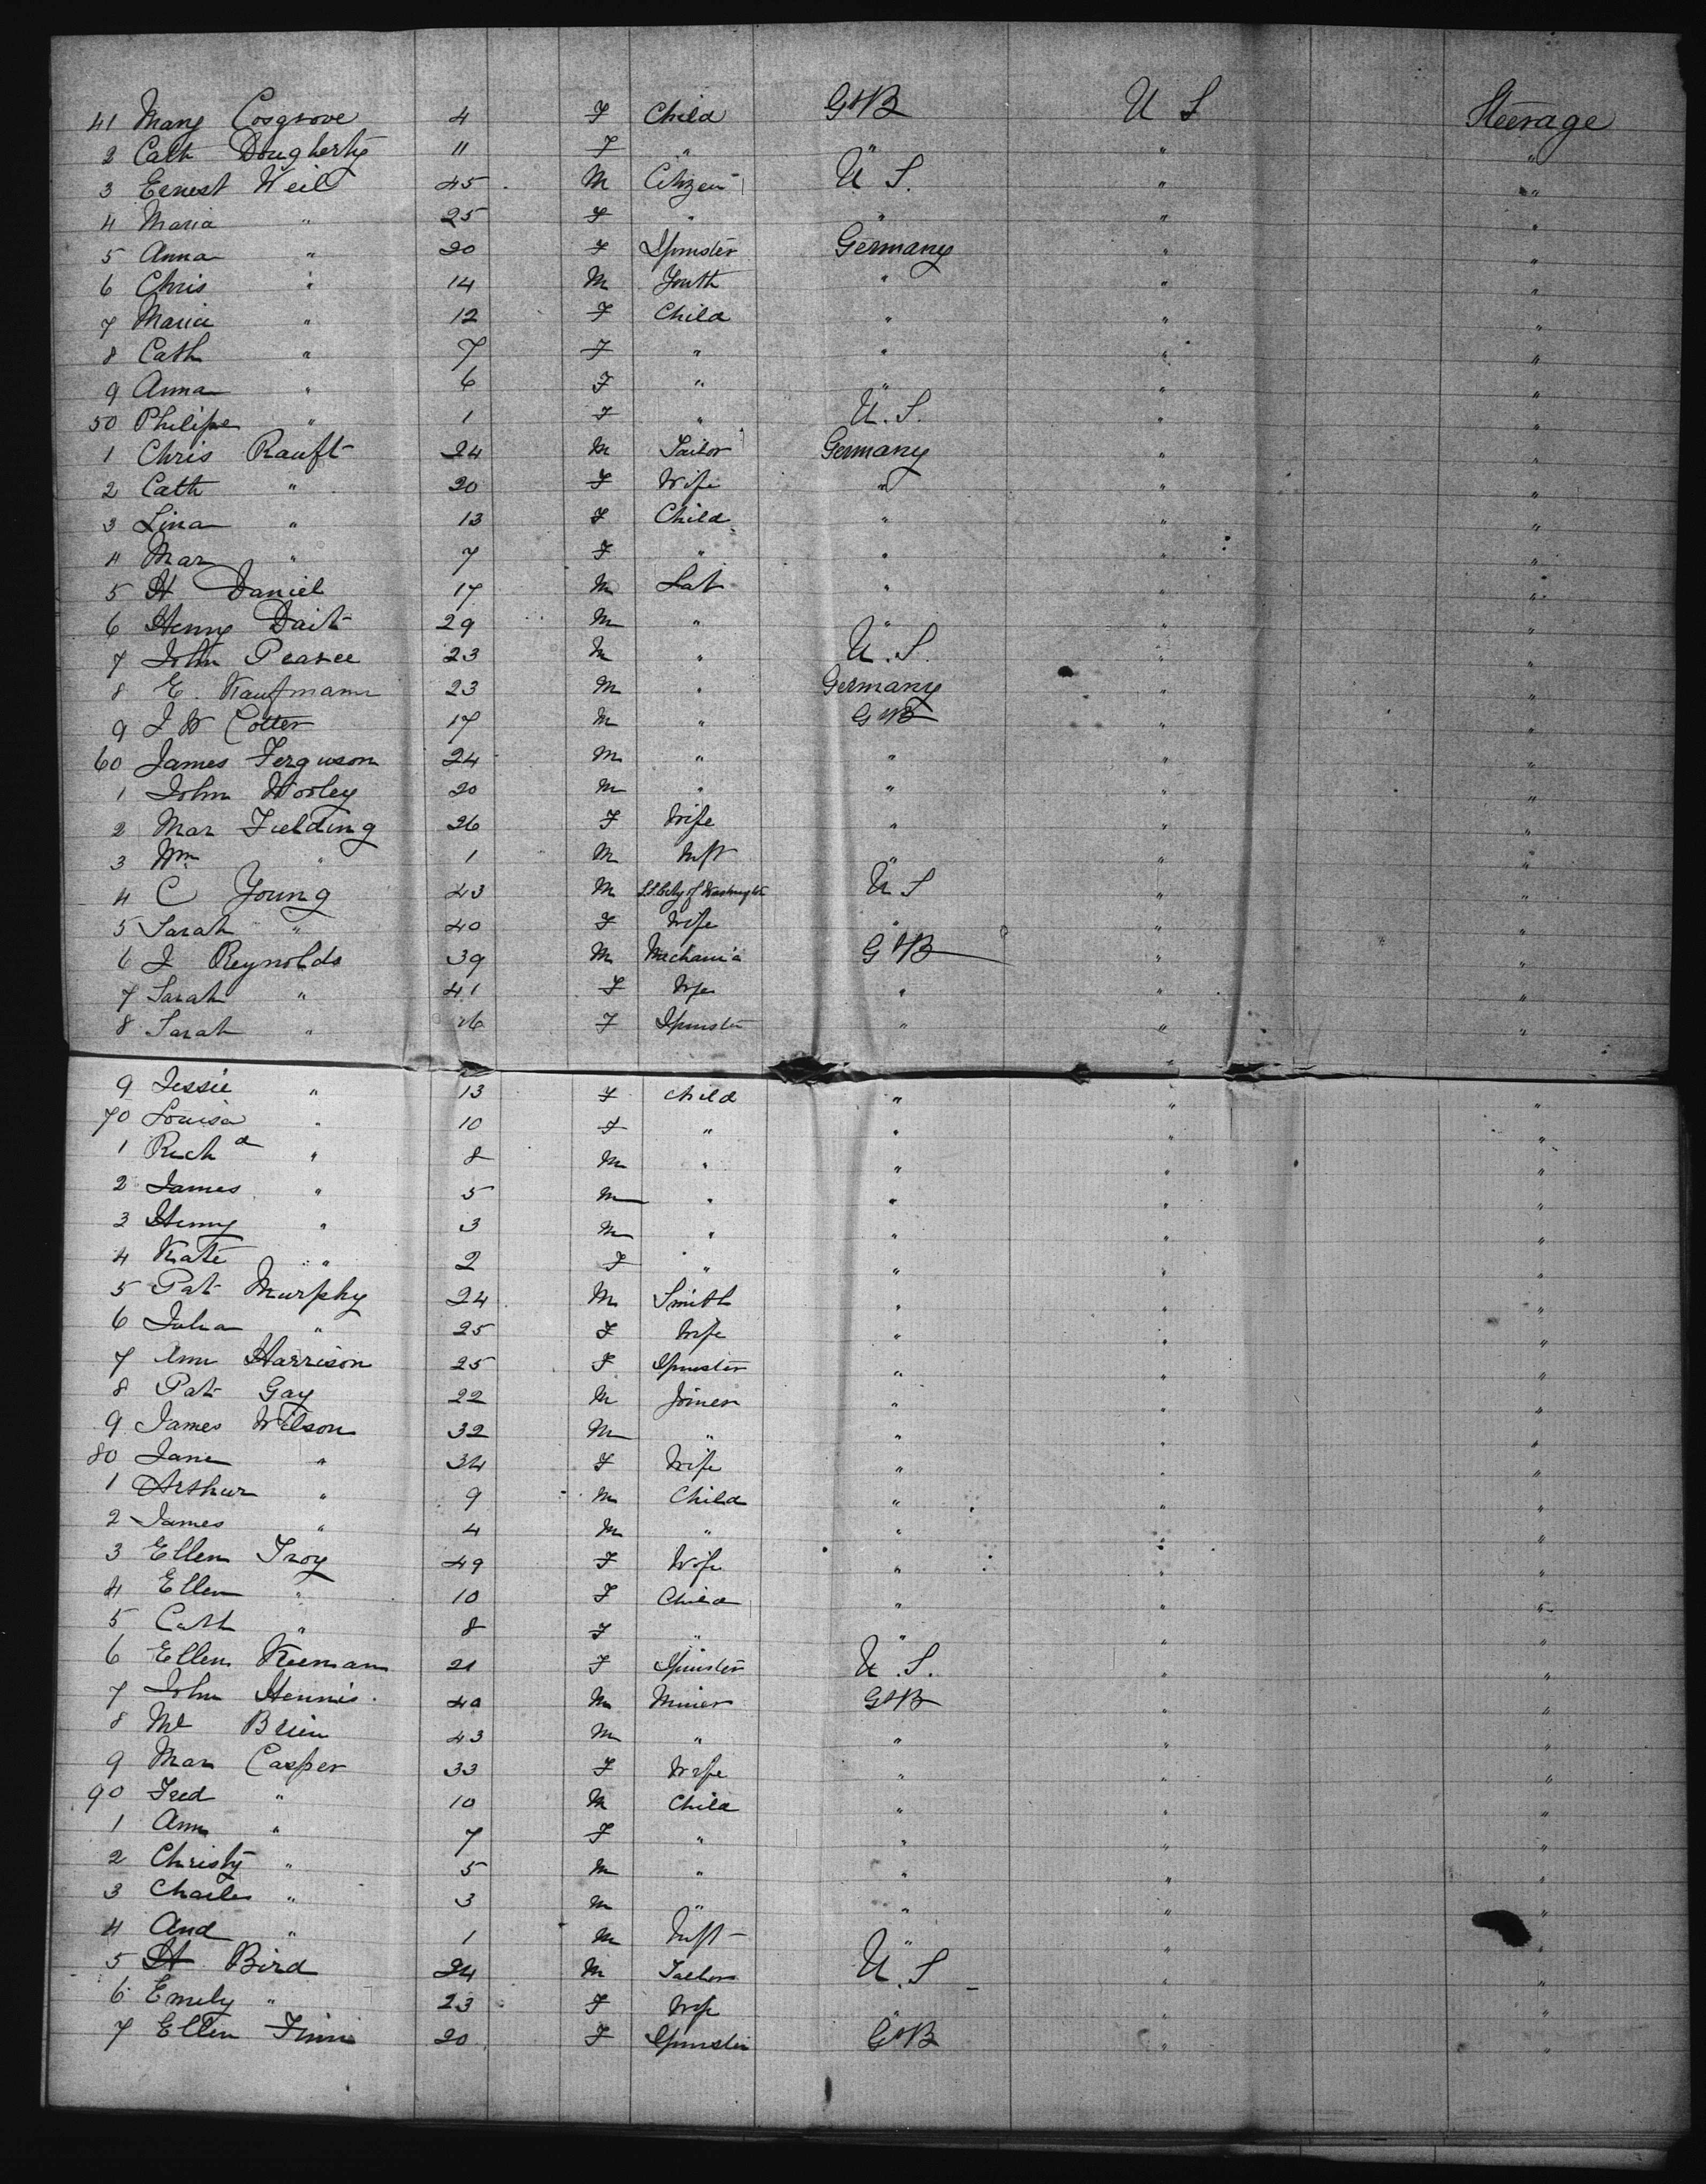 41 Mary Cosgrove 4 F Child GtB U S Steerage
2 Cath Dougherty 11 F " " " "
3 Ernest Weil 45 M Citizen U S. " "
4 Maria " 25 F " " " "
5 Anna " 20 F Spinster Germany " "
6 Chris " 14 M Youth " " "
7 Maria " 12 F Child " " "
8 Cath " 7 F " " " "
9 Anna " 6 F " " " "
50 Philipe " 1 F " U.S. " "
1 Chris Rauft 24 M Tailor Germany " "
2 Cath " 20 F Wife " " "
3 Lina " 13 F Child " " "
4 Mar " 7 F " " " "
5 H Daniel 17 M Lab " " "
6 Henry Dait 29 M " " " "
7 John Pearce 23 M " U.S. " "
8 E. Kaufmann 23 M " Germany " "
9 J W Cotter 17 M " GtB " "
60 James Ferguson 24 M " " " "
1 John Worley 20 M " " " "
2 Mar Fielding 26 F Wife " " "
3 Wm " 1 M Inft " " "
4 C Young 43 M S.S. City of Washington U S " "
5 Sarah " 40 F Wife " " "
6 J Reynolds 39 M Mechanic GtB " "
7 Sarah " 41 F Wife " " "
8 Sarah " 16 F Spinster " " "
9 Jessie " 13 F Child " " "
70 Louisa " 10 F " " " "
1 Richd " 8 M " " " "
2 James " 5 M " " " "
3 Henry " 3 M " " " "
4 Kate " 2 F " " " "
5 Pat Murphy 24 M Smith " " "
6 Julia " 25 F Wife " " "
7 Ann Harrison 25 F Spinster " " "
8 Pat Gay 22 M Joiner " " "
9 James Wilson 32 M " " " "
80 Jane " 34 F Wife " " "
1 Arthur " 9 M Child " " "
2 James " 4 M " " " "
3 Ellen Troy 49 F Wife " " "
4 Ellen " 10 F Child " " "
5 Cath " 8 F " " " "
6 Ellen Keenan 21 F Spinster U.S. " "
7 John Hennis 40 M Miner GtB " "
8 Ml Brien 43 M " " " "
9 Mar Casper 33 F Wife " " "
90 Fred " 10 M Child " " "
1 Ann " 7 F " " " "
2 Christy " 5 M " " " "
3 Charles " 3 M " " " "
4 And " 1 M Inft " " "
5 H Bird 24 M Tailor U.S " "
6 Emily " 23 F Wife " " "
7 Ellen Finn 20 F Spinster GtB " "